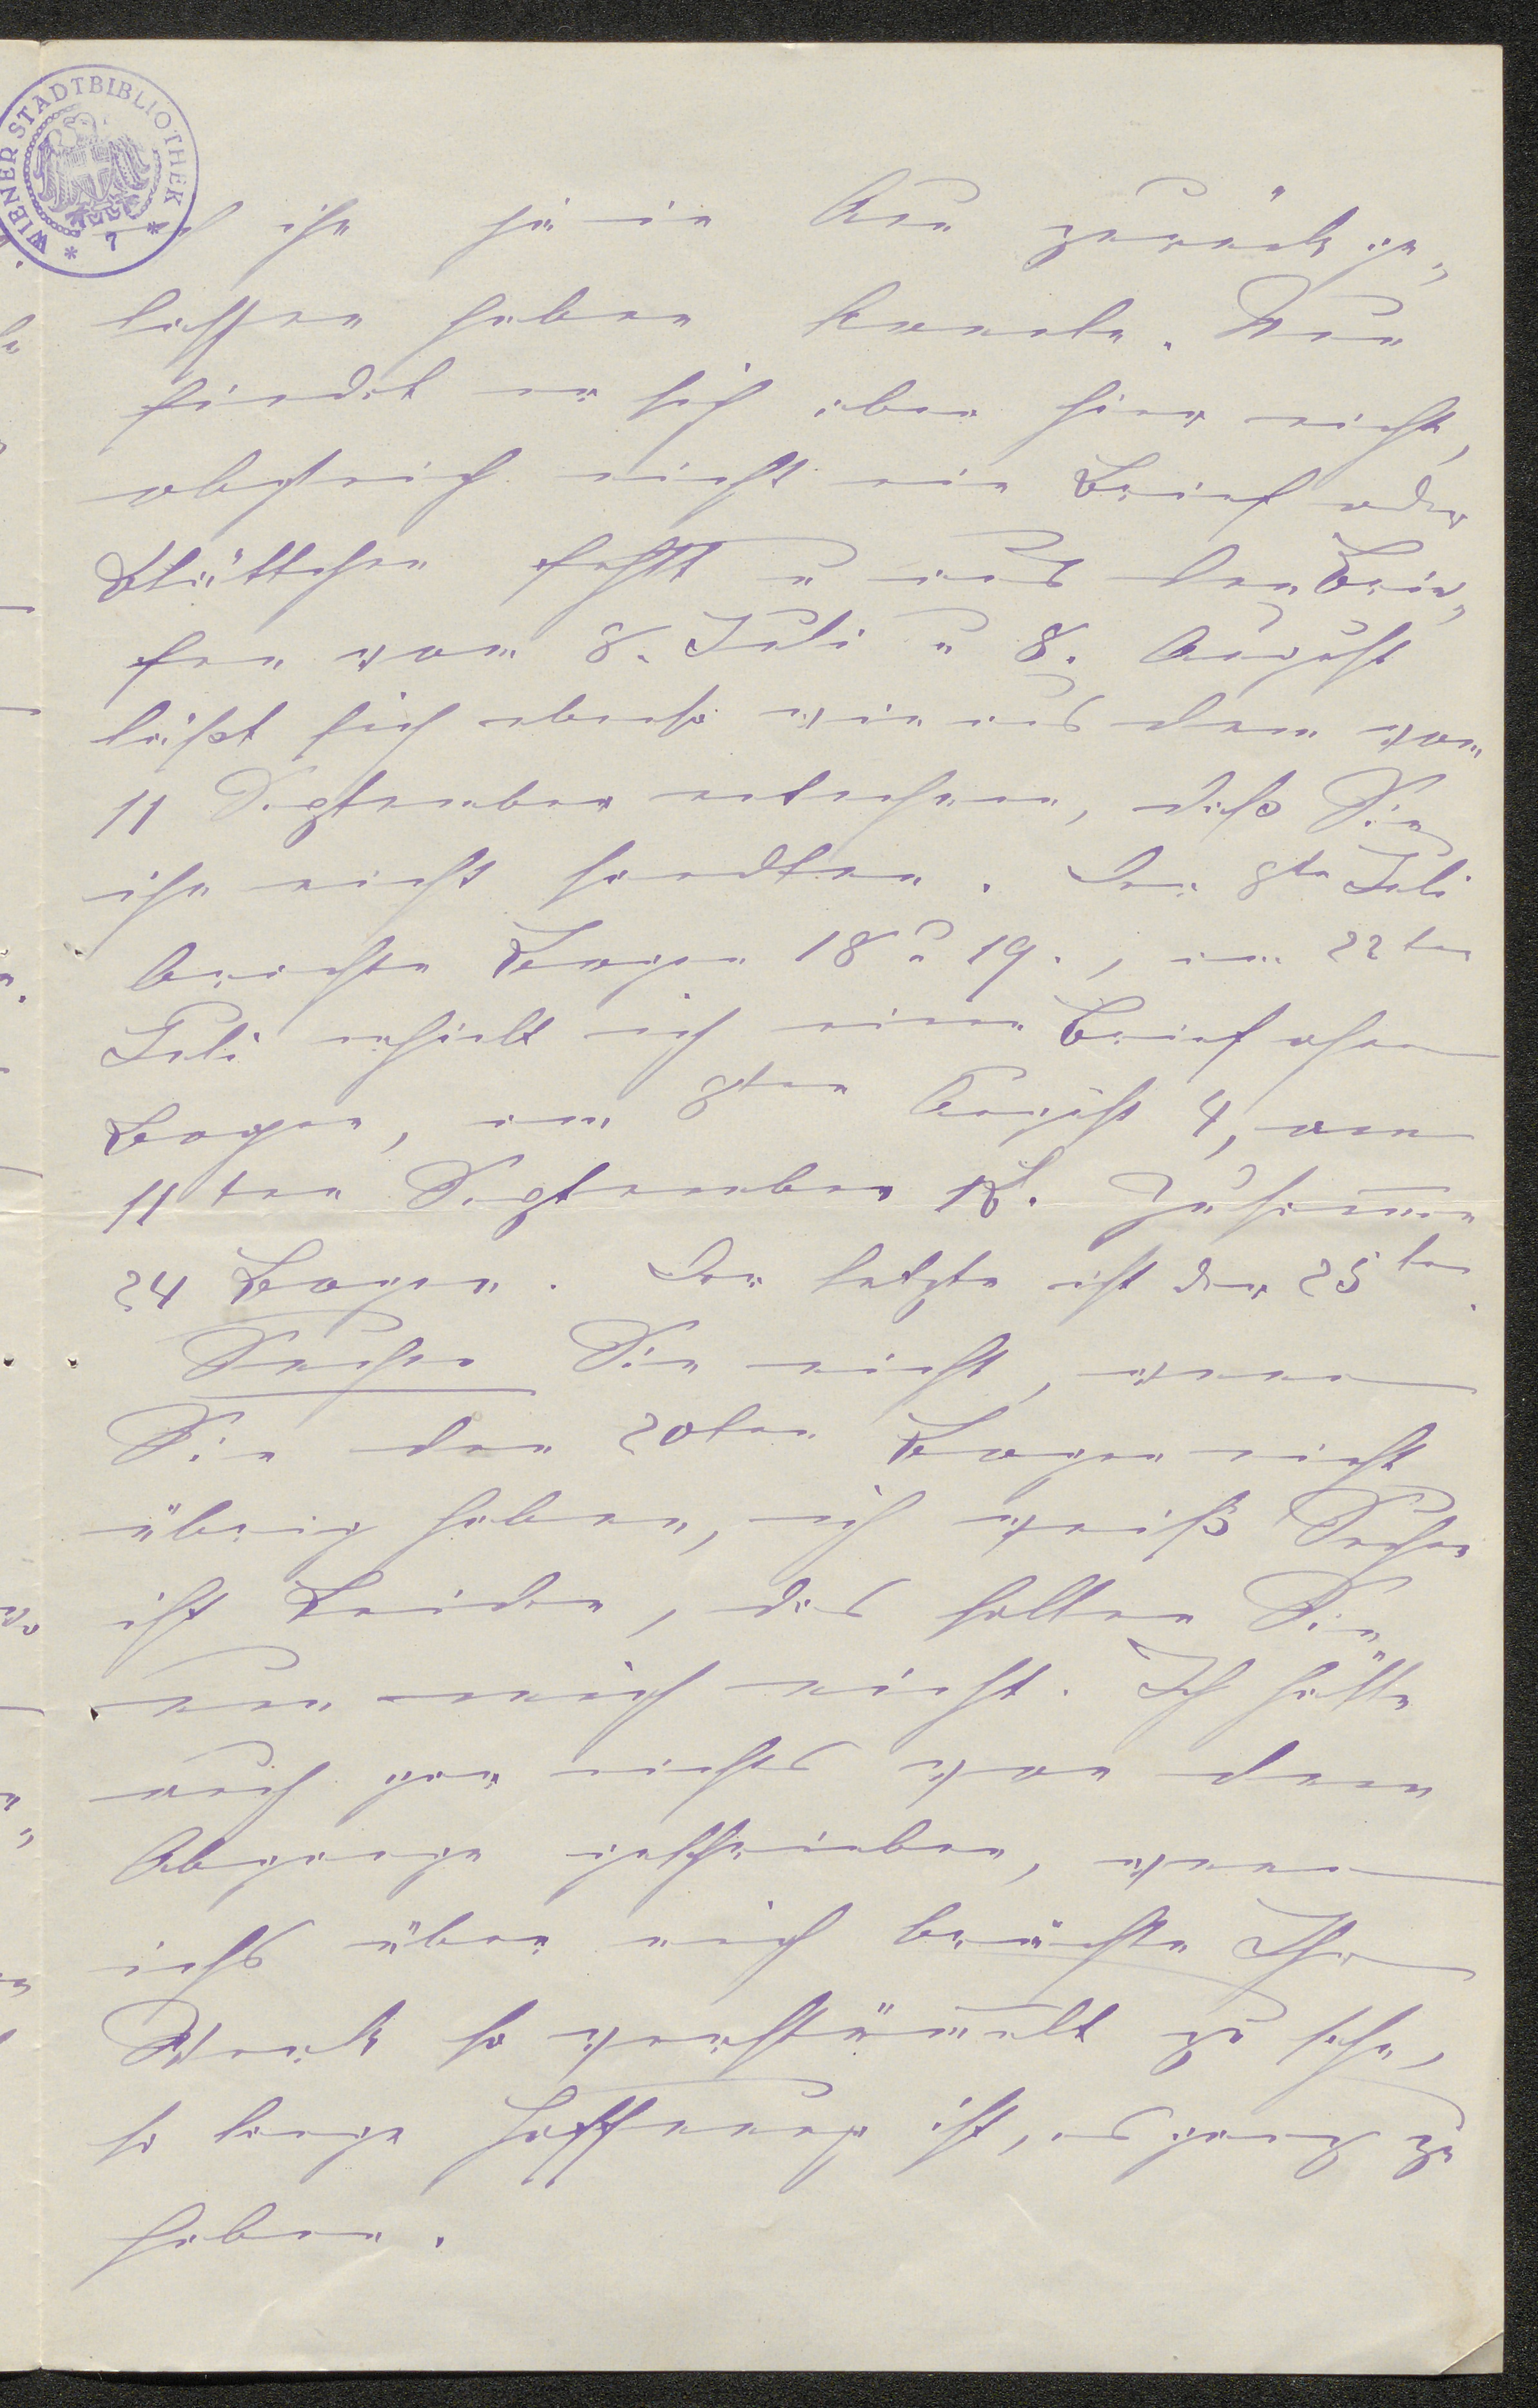 WIENER STADTBIBLIOTHEK * 7 *
ich ihn ja in Aue zurückge„
lassen haben konnte. Nun
findet er sich aber hier nicht,
obgleich nicht ein Brief oder
Blättchen fehlt u aus den Brie„
fen vom 8. Juli u 8. August
läßt sich ebenso wie aus dem vom
11 September entnehmen, daß Sie
ihn nicht sandten. Der 8te Juli
brachte Bogen 18 u 19., am 22ten
Juli erhielt ich einen Brief ohne
Bogen, am 8ten August 4, am
11ten September 18. Zusammen
24 Bogen. Der letzte ist der 25te.
Suchen Sie nicht, wenn
Sie den 20ten Bogen nicht
übrig haben, ich weiß Suchen
ist Leiden, das sollen Sie
um mich nicht. Ich hätte
auch gar nichts von dem
Abgange geschrieben, wenn
ichs über mich brächte Ihr
Werk so verstümelt zu sehn,
so lange Hoffnung ist, es ganz zu
haben.